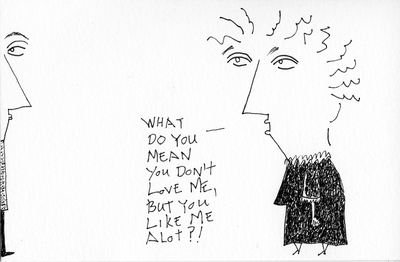 WHAT
DO YOU
MEAN
YOU DON'T
LOVE ME,
BUT YOU
LIKE ME
ALOT?!